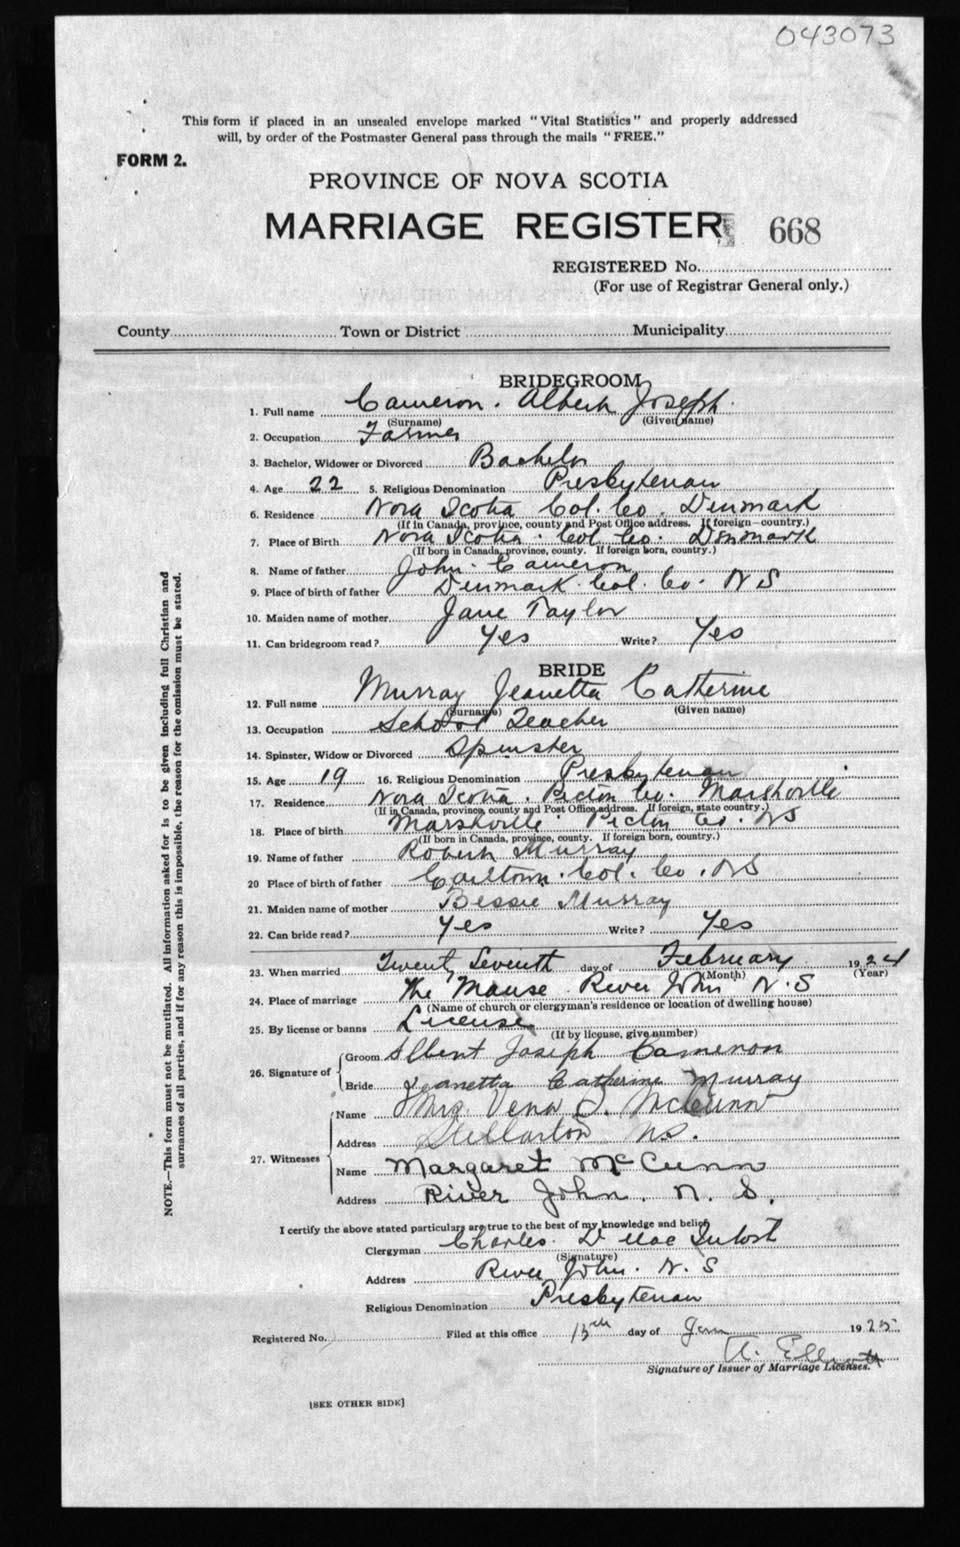 043073
This form if placed in an unsealed envelope marked "Vital Statistics" and properly addressed
will, by order of the Postmaster General pass through the mails "FREE."
FORM 2.
PROVINCE OF NOVA SCOTIA
MARRIAGE REGISTER 668
REGISTERED No.
(For use of Registrar General only.)
County Town or District Municipality
BRIDEGROOM
1. Full name Cameron. Albert Joseph.
(Surname) (Given name)
2. Occupation Farmer
3. Bachelor, Widower or Divorced Bachelor
4. Age 22 5. Religious Denomination Presbyterian
6. Residence Nova Scotia Col. Co. Denmark
(If in Canada, province, county and Post Office address. If foreign—country.)
7. Place of Birth Nova Scotia. Col. Co. Denmark
(If born in Canada, province, county. If foreign born, country.)
8. Name of father John. Cameron
9. Place of birth of father Denmark. Col. Co. N S
10. Maiden name of mother Jane Taylor
11. Can bridegroom read? Yes Write? Yes
BRIDE
12. Full name Murray Jeanetta Catherine
(Surname) (Given name)
13. Occupation School Teacher
14. Spinster, Widow or Divorced Spinster
15. Age 19 16. Religious Denomination Presbyterian
17. Residence Nova Scotia. Pictou Co. Marshville
(If in Canada, province, county and Post Office address. If foreign, state country.)
18. Place of birth Marshville. Pictou Co. NS
(If born in Canada, province, county. If foreign born, country.)
19. Name of father Robert Murray
20 Place of birth of father Earltown. Col. Co. NS
21. Maiden name of mother Bessie Murray
22. Can bride read? Yes Write? Yes
23. When married Twenty Seventh day of February 1924
(Month) (Year)
24. Place of marriage The Manse River John N.S
(Name of church or clergyman's residence or location of dwelling house)
25. By license or banns License
(If by license, give number)
26. Signature of Groom Albert Joseph Cameron
Bride Jeanetta Catherine Murray
27. Witnesses Name Mrs. Vena McCunn
Address Stellarton N.S.
Name Margaret McCunn
Address River John. N. S.
I certify the above stated particulars are true to the best of my knowledge and belief,
Clergyman Charles. D
(Signature)
Address River John. N. S
Religious Denomination Presbyterian
Registered No. Filed at this office 15th day of Jan 1925
A.
Signature of Issuer of Marriage Licenses.
[SEE OTHER SIDE]
NOTE.—This form must not be mutilated. All information asked for is to be given including full Christian and
surnames of all parties, and if for any reason this is impossible, the reason for the omission must be stated.